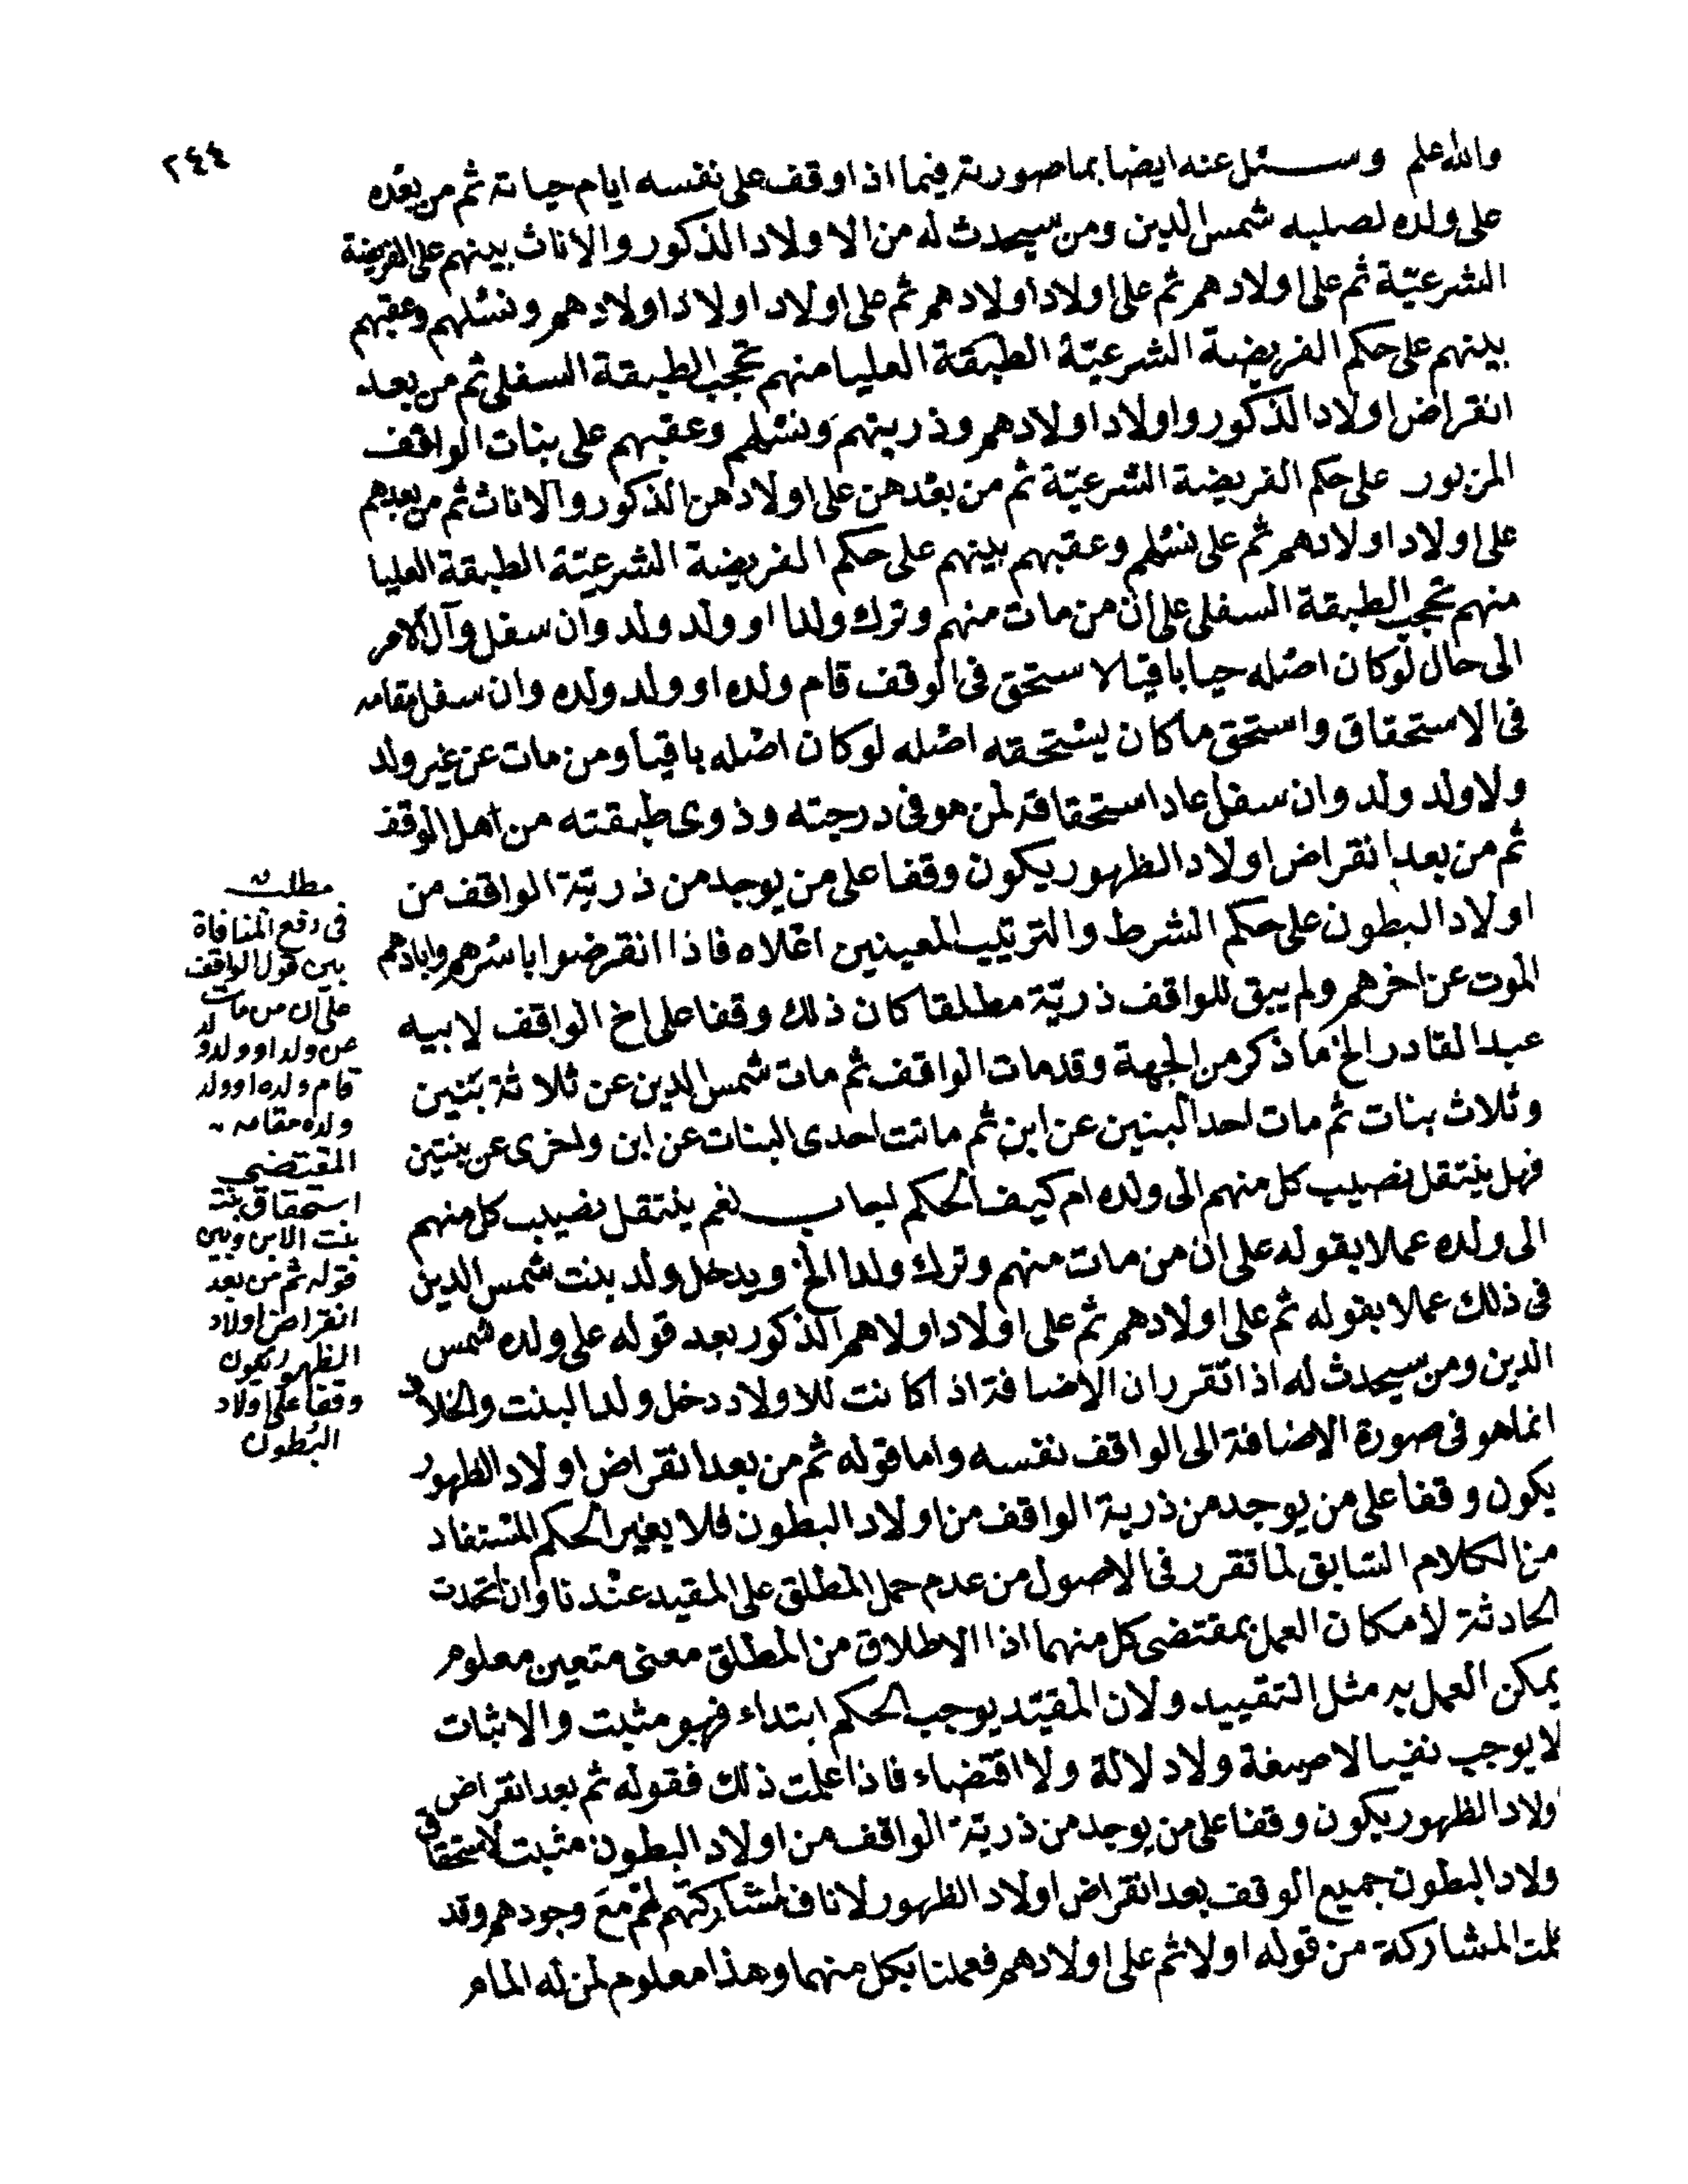 ٢٤٤
والله علم وسئل عنه ايضا بما صورته فيما اذا وقف على نفسه ايام حياته ثم من بعده
على ولده لصلبه شمس الدين ومن سيحدث له من الاولاد الذكور والاناث بينهم على الفريضة
الشرعيّة ثم على اولادهم ثم على اولاد اولادهم ثم على اولاد اولاد اولادهم ونسلهم وعقبهم
بينهم على حكم الفريضة الشرعيّة الطبقة العليا منهم تحجب الطبقة السفلى ثم من بعد
انقراض اولاد الذكور واولاد اولادهم وذريتهم ونسلهم وعقبهم على بنات الواقف
المزبور على حكم الفريضة الشرعيّة ثم من بعدهن على اولادهن الذكور والاناث ثم من بعدهم
على اولاد اولادهم ثم على نسلهم وعقبهم بينهم على حكم الفريضة الشرعيّة الطبقة العليا
منهم تحجب الطبقة السفلى على ان من مات منهم وترك ولدا او ولد ولد وان سفل وآل الامر
الى حال لو كان اصله حيا باقيا لاستحق فى الوقف قام ولده او ولد ولده وان سفل مقامه
فى الاستحقاق واستحق ما كان يستحقه اصله لو كان اصله باقيا ومن مات عن غير ولد
ولا ولد ولد وان سفل عاد استحقاقه لمن هو فى درجته وذوى طبقته من اهل الوقف
ثم من بعد انقراض اولاد الظهور يكون وقفا على من يوجد من ذريّة الواقف من
اولاد البطون على حكم الشرط والترتيب المعينين اعلاه فاذا انقرضوا باسرهم وابادهم
الموت عن اخرهم ولم يبق للواقف ذريّة مطلقا كان ذلك وقفا على اخ الواقف لابيه
عبد القادر الخ ما ذكر من الجهة وقد مات الواقف ثم مات شمس الدين عن ثلاثة بنين
وثلاث بنات ثم مات احد البنين عن ابن ثم ماتت احدى البنات عن ابن واخرى عن بنتين
فهل ينتقل نصيب كل منهم الى ولده ام كيف الحكم اجاب نعم ينتقل نصيب كل منهم
الى ولده عملا بقوله على ان من مات منهم وترك ولدا الخ ويدخل ولد بنت شمس الدين
فى ذلك عملا بقوله ثم على اولادهم ثم على اولاد اولاهم الذكور بعد قوله على ولده شمس
الدين ومن سيحدث له اذا تقرر ان الاضافة اذا كانت للاولاد دخل ولد البنت والخلاف
انما هو فى صورة الاضافة الى الواقف نفسه واما قوله ثم من بعد انقراض اولاد الظهور
يكون وقفا على من يوجد من ذرية الواقف من اولاد البطون فلا يغير الحكم المستفاد
من الكلام السابق لما تقرر فى الاصول من عدم حمل المطلق على المقيد عندنا وان اتحدت
الحادثة لامكان العمل بمقتضى كل منهما اذا الاطلاق من المطلق معنى متعين معلوم
يمكن العمل به مثل التقييد ولان المقيّد يوجب الحكم ابتداء فهو مثبت والاثبات
لا يوجب نفيا لا صيغة ولا دلالة ولا اقتضاء فاذا علمت ذلك فقوله ثم بعد انقراض
ولاد الظهور يكون وقفا على من يوجد من ذريّة الواقف من اولاد البطون مثبت لاستحقاق
ولاد البطون جميع الوقف بعد انقراض اولاد الظهور لا ناف لمشاركتهم لهم مع وجودهم وقد
علمت المشاركة من قوله اولا ثم على اولادهم فعملنا بكل منهما وهذا معلوم لمن له المام
مطلب
فى دفع المنافاة
بين قول الواقف
على ان من مات
عن ولد او ولد ولد
قام ولده او ولد
ولده مقامه
المقتضى
استحقاق بنت
بنت الابن وبين
قوله ثم من بعد
انقراض اولاد
الظهور يكون
وقفا على اولاد
البطون